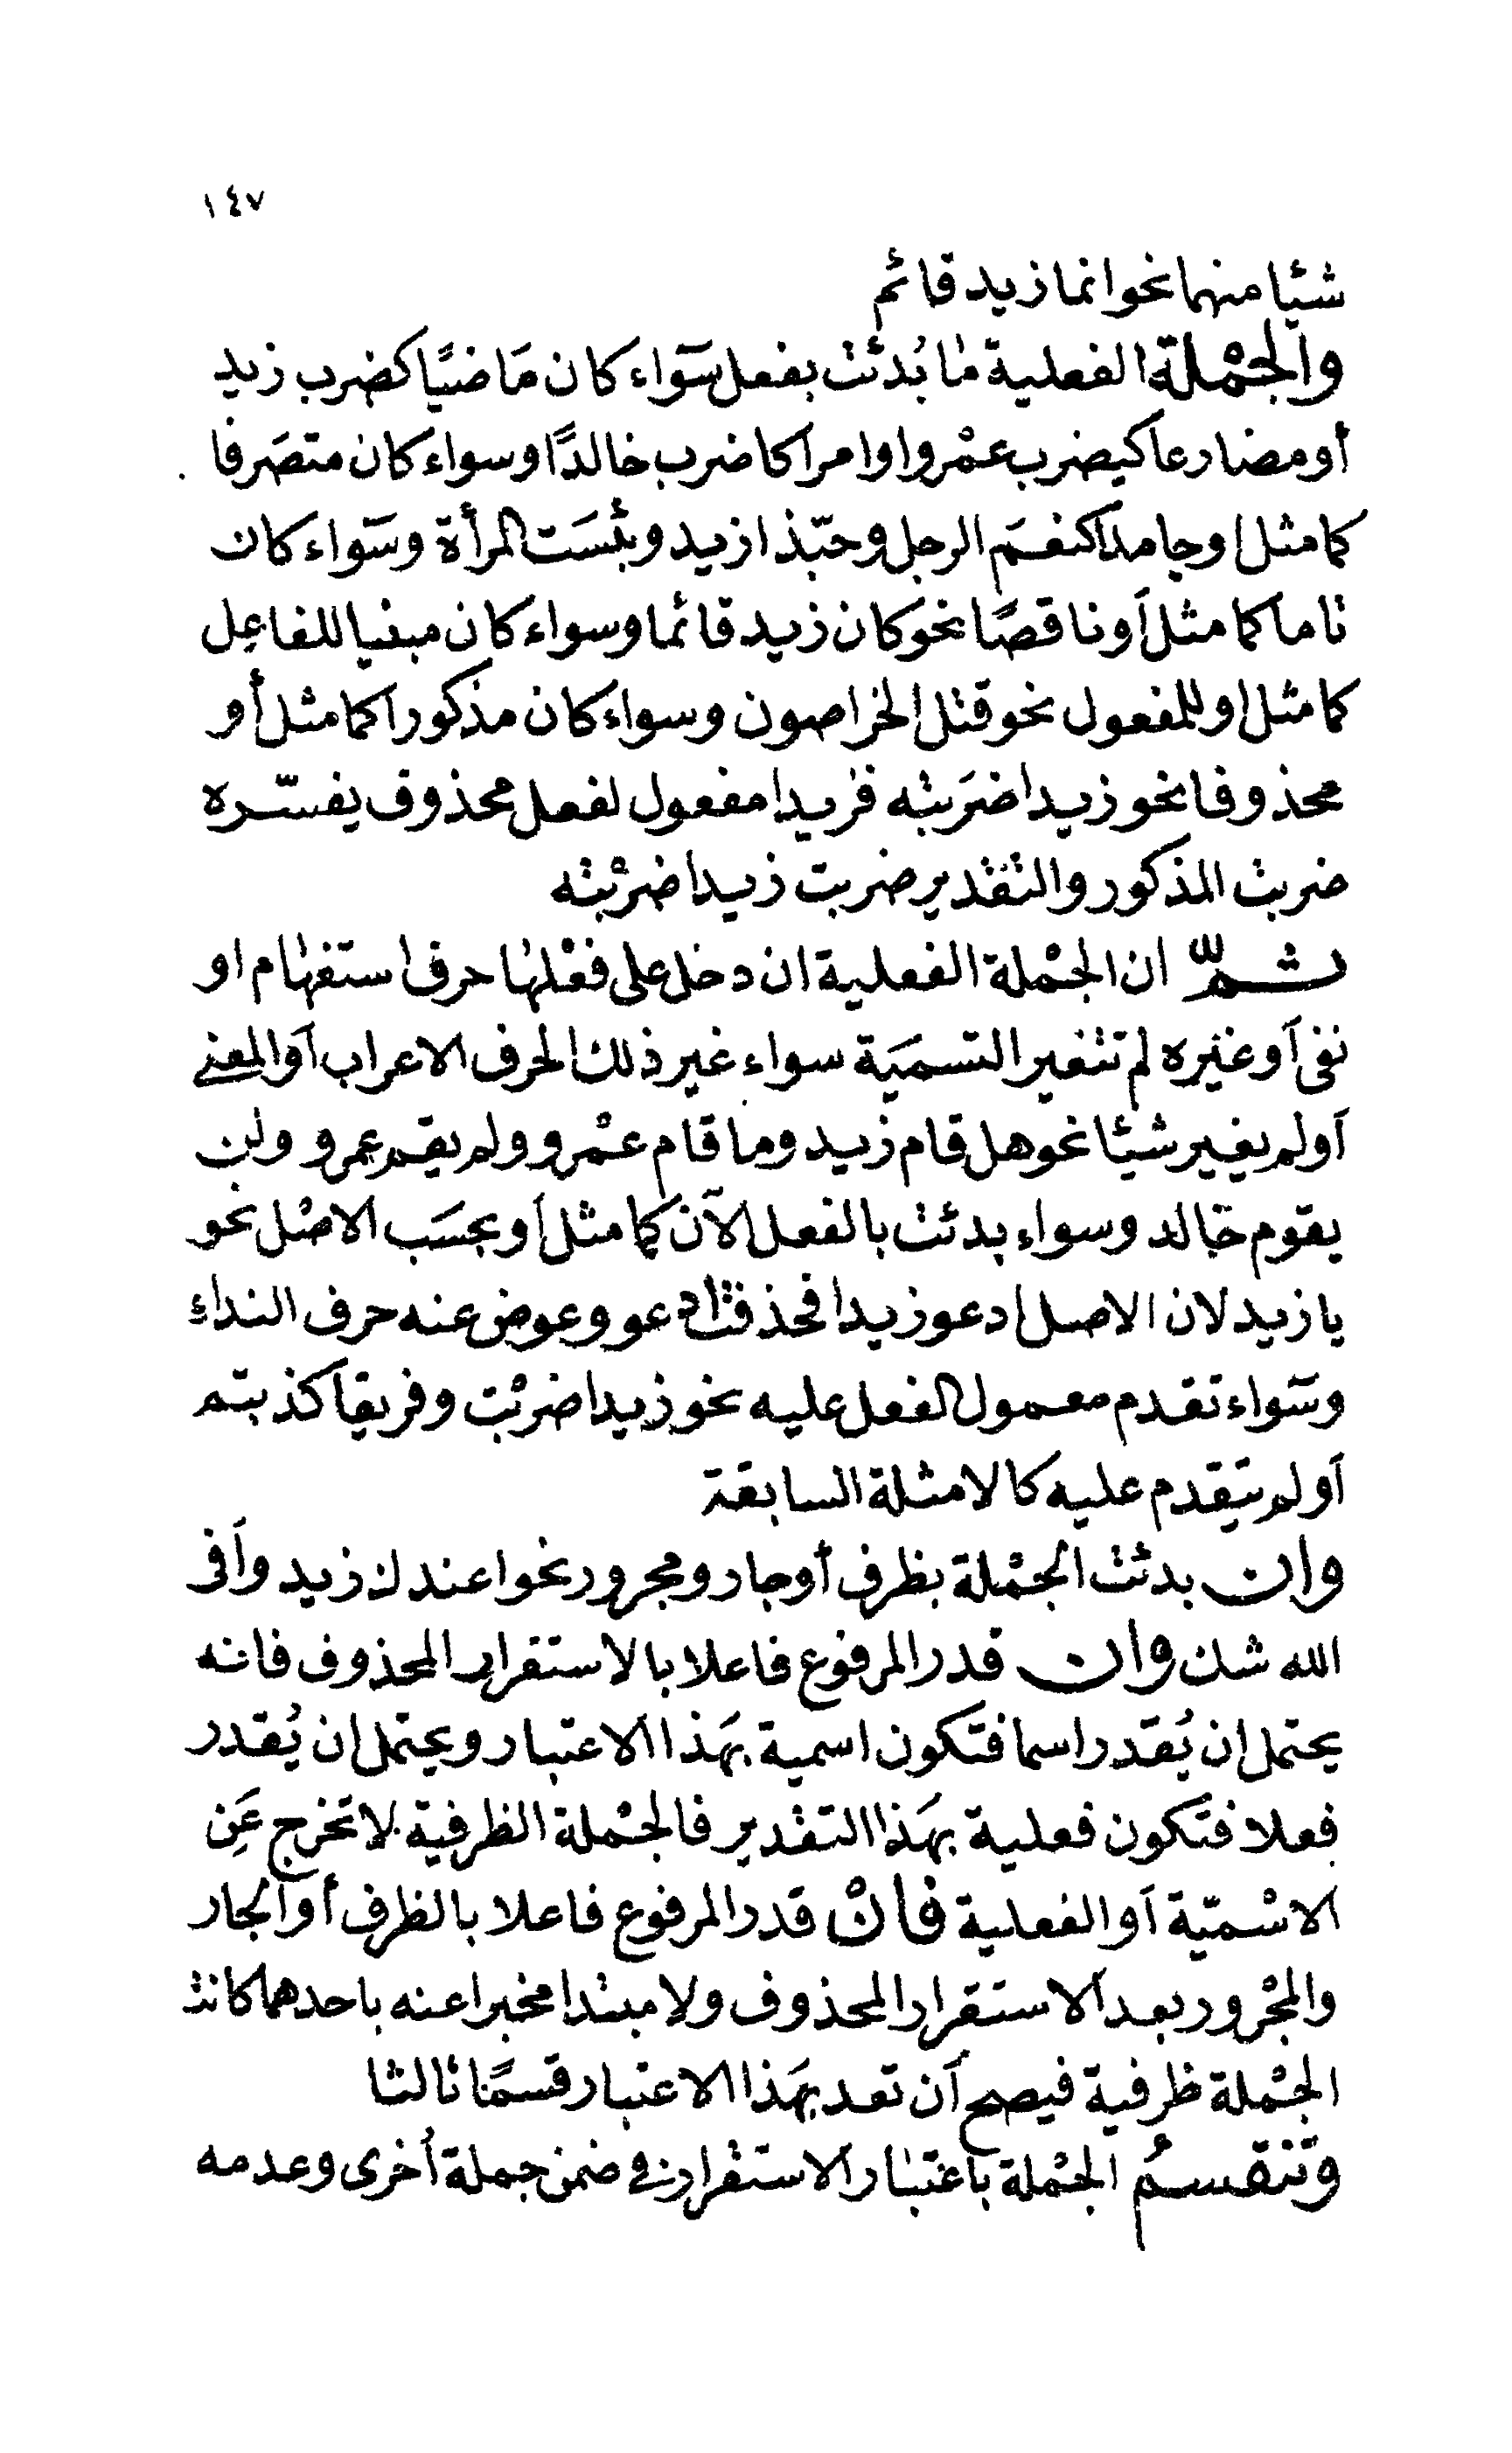 ١٤٧
شيئا منهما نحو انما زيد قائم
والجمْلة الفعلية ما بُدئت بفعل سَواء كان مَاضيًا كضرب زيد
أو مضارعا كيضرب عمْرو او امرا كاضرب خالدًا وسواء كان متصَرفا
كما مثل او جامدا كنعمَ الرجل وحبّذا زيد وبئسَت المرأة وسَواء كان
تاما كما مثل أو ناقصًا نحو كان زيد قائما وسواء كان مبنيا للفاعل
كما مثل او للمفعول نحو قتل الخراصون وسواء كان مذكورا كما مثل أو
محذوفا نحو زيدا ضرَبته فزيدا مفعول لفعل محذوف يفسّره
ضربت المذكور والتقدير ضربت زيدا ضرْبته
ثمّ ان الجمْلة الفعلية ان دخل على فعْلها حرف استفهام او
نفى أو غيره لم تتغير التسميَة سواء غير ذلك الحرف الاعراب أو المعنى
أولم يغير شيئا نحو هل قام زيد وما قام عمْرو ولم يقم عمرو ولن
يقوم خالد وسواء بدئت بالفعل الآن كما مثل أو بحسَب الاصْل نحو
يا زيد لان الاصل ادعو زيدا فحذفت ادعو وعوض عنه حرف النداء
وسَواء تقدم معمول الفعل عليه نحو زيدا ضربْت وفريقا كذبتم
أولم يتقدم عليه كالامثلة السابقة
وان بدئت الجمْلة بظرف أو جار ومجرور نحو اعندك زيد وأفى
الله شك وان قدر المرفوع فاعلا بالاستقرار المحذوف فانه
يحتمل ان يُقدر اسما فتكون اسمية بهَذا الاعتبار ويحتمل ان يُقدر
فعلا فتكون فعلية بهَذا التقدير فالجمْلة الظرفية لا تخرج عَن
الاسْميّة أو الفعلية فانْ قدر المرفوع فاعلا بالظرف أو الجار
والمجْرور بعد الاستقرار المحذوف ولا مبتدا مخبرا عنه باحدهما كانت
الجمْلة ظرفية فيصح أن تعد بهَذا الاعتبار قسمًا ثالثا
وتنقسمُ الجمْلة باعتبار الاستقرار في ضمن جملة أُخرى وعدمه